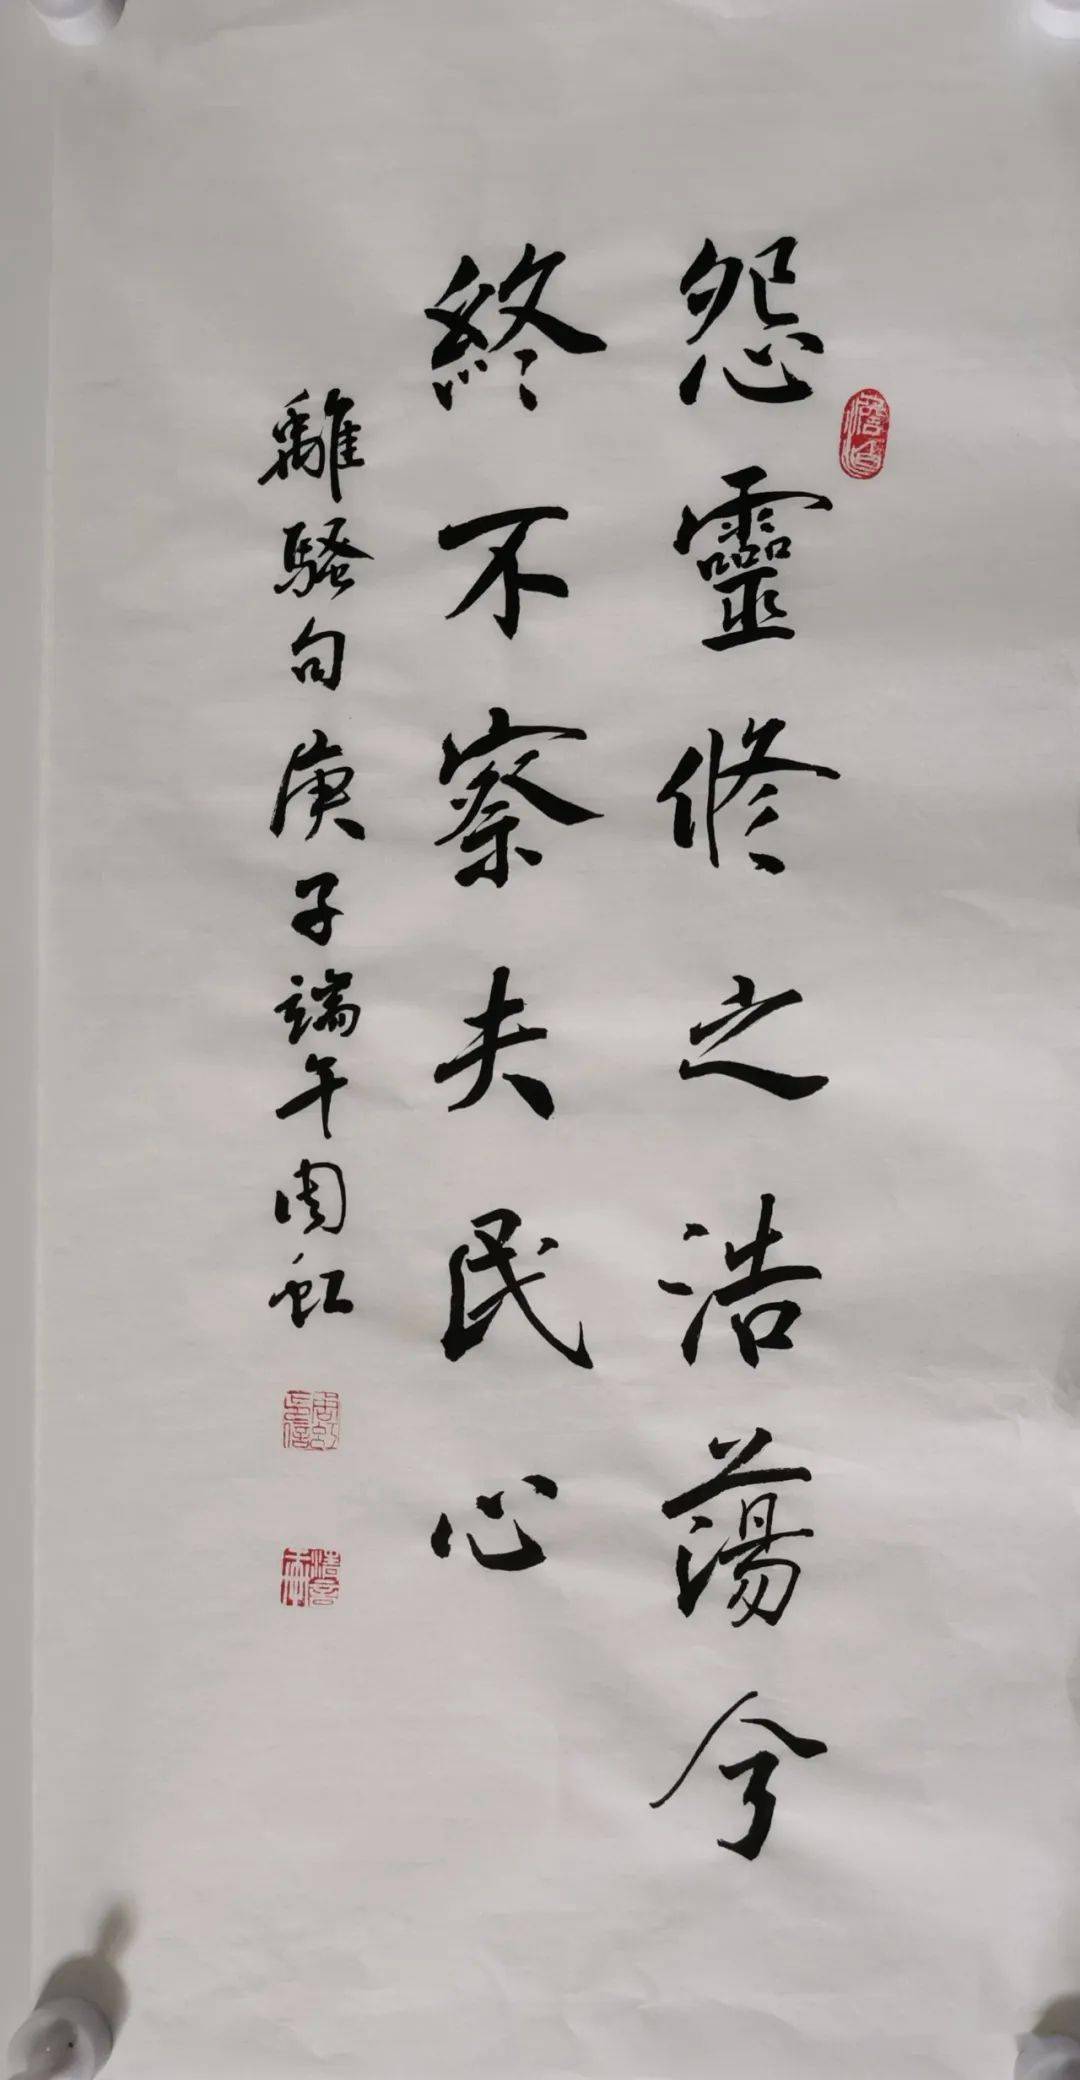 怨靈修之浩蕩兮
終不察夫民心
離騷句庚子端午周虹